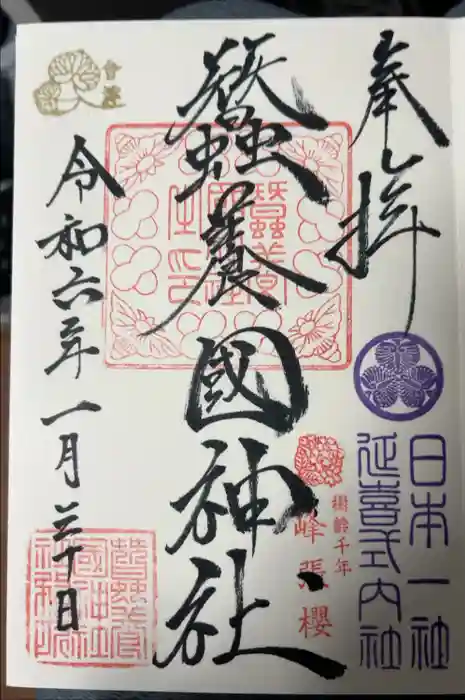 奉拝
日本一社
延喜式内社
蠶養國神社
樹齢千年
峰張櫻
令和六年一月三十日
會津